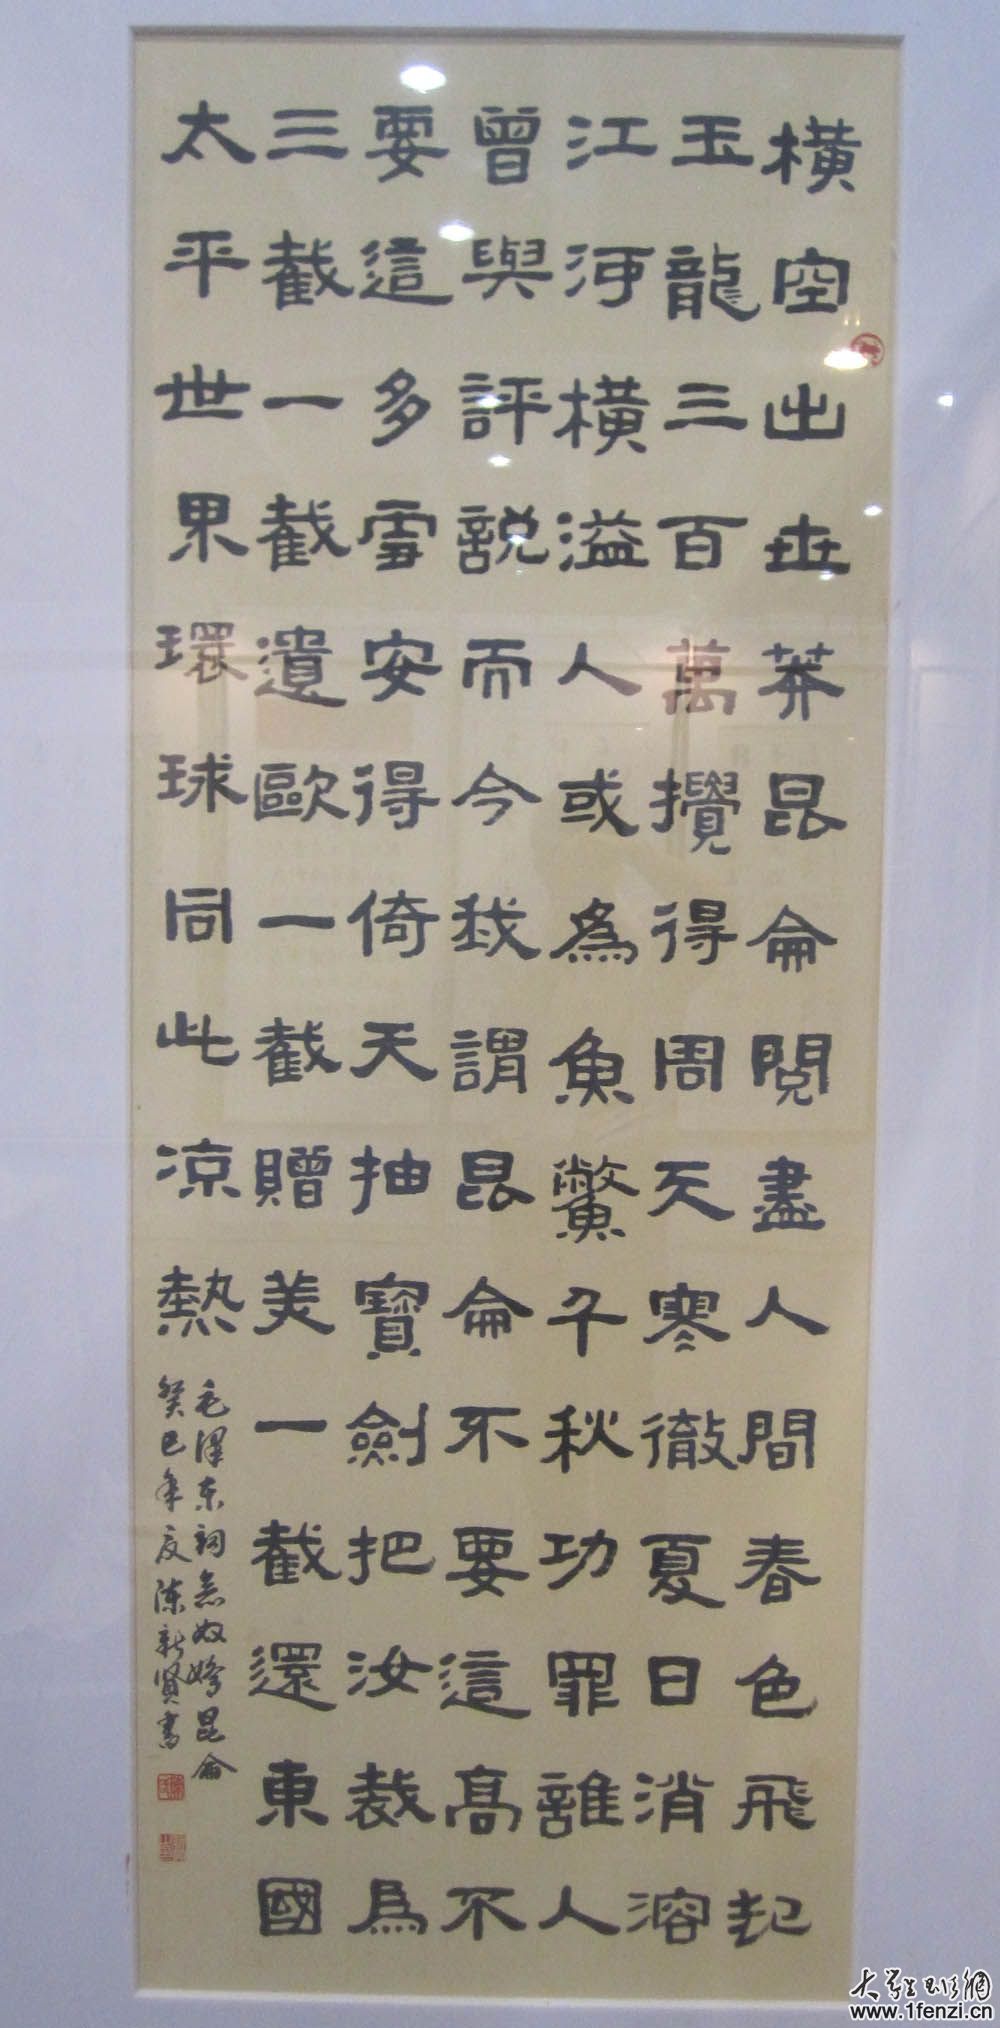 橫空出世莽昆侖閱盡人間春色飛起
玉龍三百萬攪得周天寒徹夏日消溶
江河橫溢人或為魚鱉千秋功罪誰人
曾與評說而今我謂昆侖不要這高不
要這多雪安得倚天抽寶劍把汝裁為
三截一截遺歐一截贈美一截還東國
太平世界環球同此涼熱
毛澤東詞念奴嬌昆侖
癸巳年夏陳新賢書
大學生書法網
www.1fenzi.cn